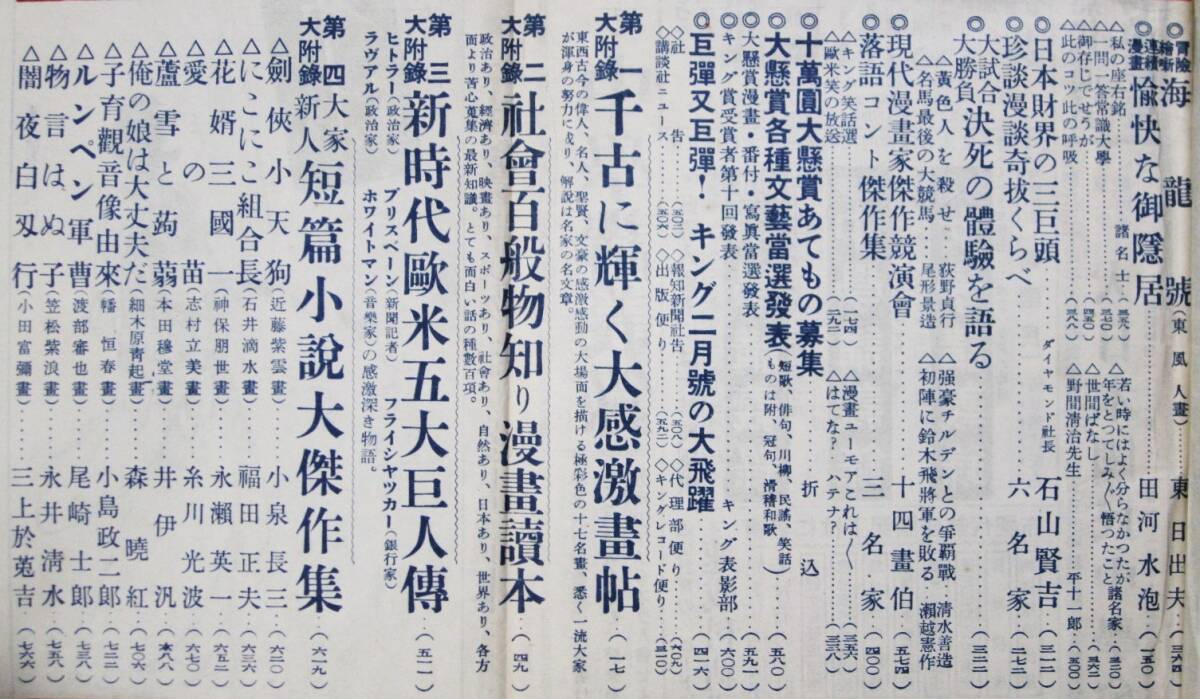 ◎冒險繪噺 海龍號(東風人畫)………東日出夫(三六四)
◎連續漫畫 愉快な御隱居………田河水泡(一五〇)
△私の座右銘…諸名士(三五八)
△一問一答常識大學………(三五〇)
△御存じでせうが………(三七〇)
△此のコツ此の呼吸………(三八八)
△若い時にはよく分らなかつたが年をとつてしみ〴〵悟つたこと 諸名家(三三二)
△世間ばなし………(三六二)
△野間清治先生………平十一郎(五〇〇)
◎日本財界の三巨頭……ダイヤモンド社長 石山賢吉(三一二)
◎珍談漫談奇拔くらべ………六名家(二七二)
◎大試合大勝負 決死の體驗を語る………(三二二)
△黃色人を殺せ…荻野貞行
△名馬最後の大競馬…尾形景造
△強豪チルデンとの爭覇戰 清水善造
△初陣に鈴木飛將軍を敗る 瀨越憲作
◎現代漫畫家傑作競演會………十四畫伯(五七四)
◎落語コント傑作集………三名家(四〇〇)
△キング笑話選………(一七四)
△歐米笑の放送………(二九二)
△漫畫ユーモアこれは〳〵………(三五六)
△はてな?ハテナ?………(三三八)
◎十萬圓大懸賞あてもの募集………折込
◎大懸賞各種文藝當選發表(短歌、俳句、川柳、民謠、笑話ものは附、冠句、滑稽和歌)(五八〇)
大懸賞漫畫・番付・寫眞當選發表………(五九一)
キング賞受賞者第十回發表………キング表彰部(六〇〇)
◎巨彈又巨彈!キング二月號の大飛躍………(四一六)
◇社告………(五〇二)
◇講談社ニュース………(五〇六)
◇報知新聞社告
◇出版便り………(五九二)
◇代理部便り………(六〇九)
◇キングレコード便り………(三一〇)
第一大附錄 千古に輝く大感激畫帖………(一七)
東西古今の偉人、名人、聖賢、文豪の感激感動の大場面を描ける極彩色の十七名畫、悉く一流大家
が渾身の努力に成り、解說は名家の名文章。
第二大附錄 社會百般物知り漫畫讀本………(四九)
政治あり、經濟あり、映畫あり、スポーツあり、社會あり、自然あり、日本あり、世界あり、各方
面より苦心蒐集の最新知識。とても面白い話の種數百項。
第三大附錄 新時代歐米五大巨人傳………(五一一)
ヒトラー(政治家) ブリスベーン(新聞記者) フライシヤツカー(銀行家)
ラヴアル(政治家) ホワイトマン(音樂家)の感激深き物語。
第四大附錄 大家新人 短篇小說大傑作集………(六一九)
△劍俠小天狗(近藤紫雲畫)………小泉長三(六二〇)
△にこにこ組合長(石井滴水畫)………福田正夫(六三六)
△花婿三國一(神保朋世畫)………永瀨英一(六五二)
△愛の苗(志村立美畫)………糸川光波(六七〇)
△蘆雪と蒟蒻(本田穆堂畫)………井伊汎(六八八)
△俺の娘は大丈夫だ(細木原青起畫)………森曉紅(七〇六)
△子育觀音像由來(幡恒春畫)………小島政二郎(七二二)
△ルンペン軍曹(渡部審也畫)………尾崎士郎(七三八)
△物言はぬ子(笠松紫浪畫)………永井清水(七五八)
△闇夜白刄行(小田富彌畫)………三上於菟吉(七六六)